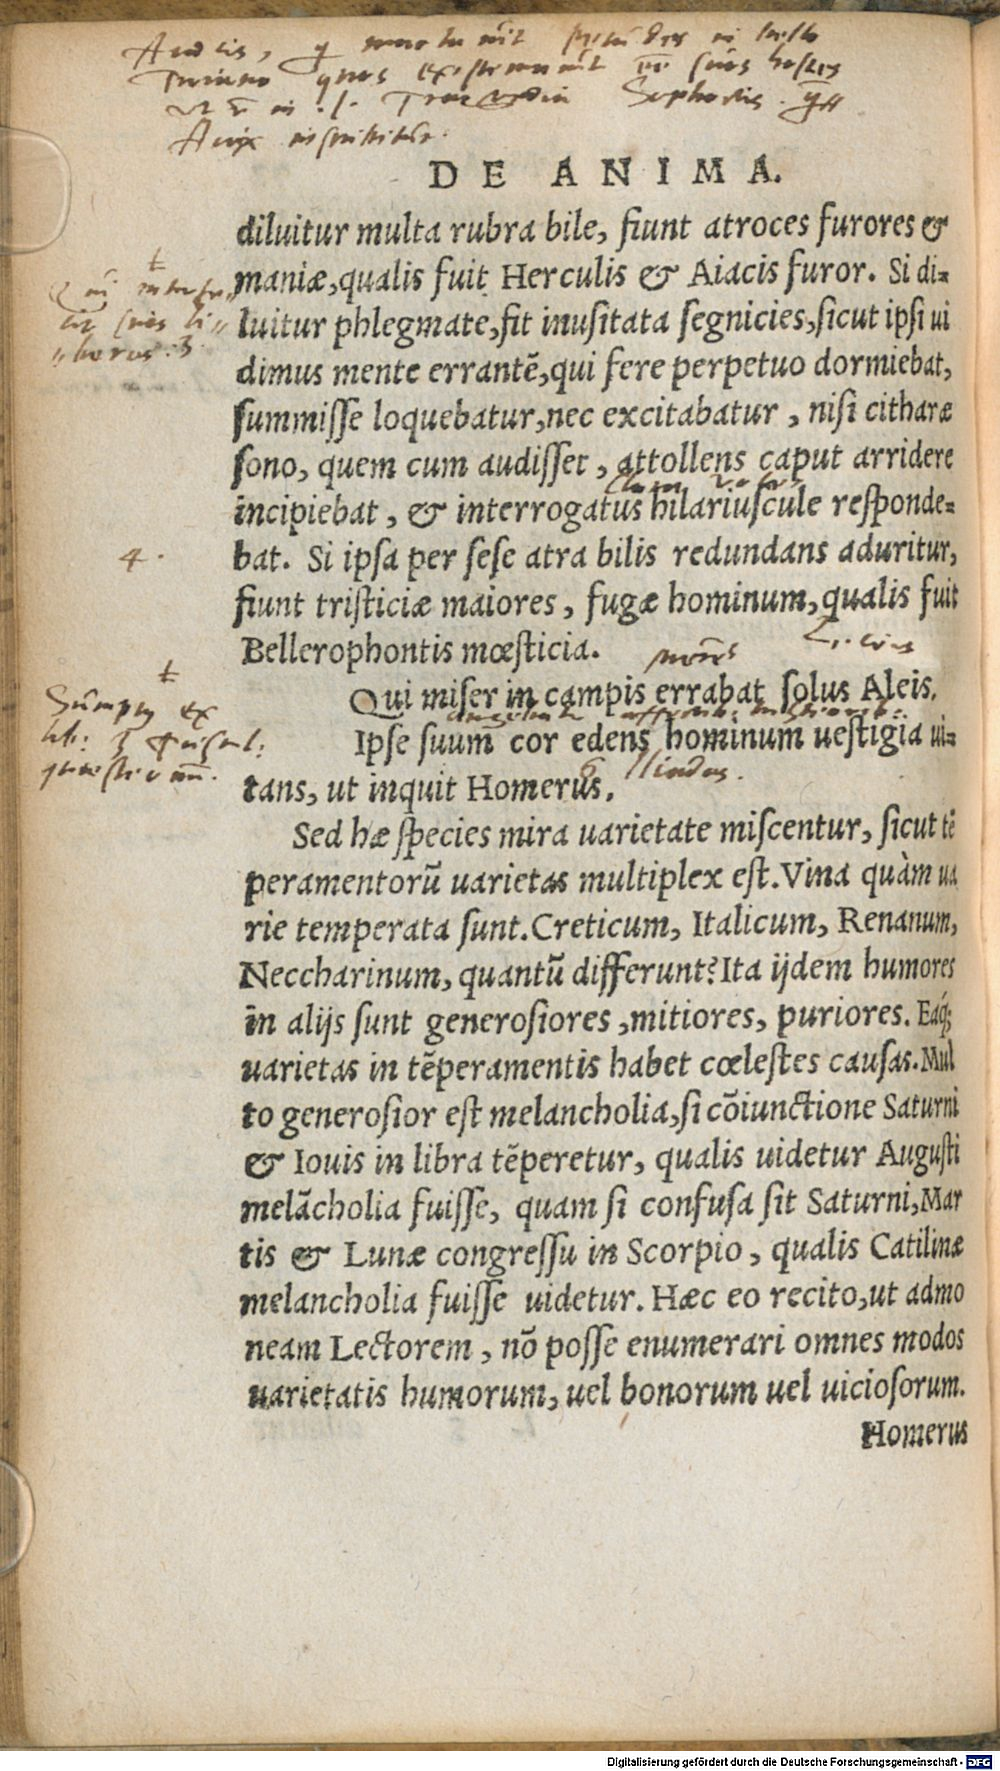 DE ANIMA.
diluitur multa rubra bile, fiunt atroces furores &
maniæ, qualis fuit Herculis & Aiacis furor. Si di=
luitur phlegmate, fit inusitata segnicies, sicut ipsi ui
dimus mente errantẽ, qui fere perpetuo dormiebat,
summisse loquebatur, nec excitabatur, nisi citharæ
sono, quem cum audisset, attollens caput arridere
incipiebat, & interrogatus hilariuscule responde=
4.
bat. Si ipsa per sese atra bilis redundans aduritur,
fiunt tristiciæ maiores, fugæ hominum, qualis fuit
Bellerophontis mœsticia.
Qui miser in campis errabat solus Aleis.
Ipse suum cor edens hominum uestigia ui=
tans, ut inquit Homerus.
6 Iliados.
Sed hæ species mira uarietate miscentur, sicut tẽ
peramentorũ uarietas multiplex est. Vina quàm ua
rie temperata sunt. Creticum, Italicum, Renanum,
Neccharinum, quantũ differunt? Ita ijdem humores
in alijs sunt generosiores, mitiores, puriores. Eáq;
uarietas in tẽperamentis habet cœlestes causas. Mul
to generosior est melancholia, si cõiunctione Saturni
& Iouis in libra tẽperetur, qualis uidetur Augusti
melãcholia fuisse, quam si confusa sit Saturni, Mar
tis & Lunæ congressu in Scorpio, qualis Catilinæ
melancholia fuisse uidetur. Hæc eo recito, ut admo
neam Lectorem, nõ posse enumerari omnes modos
uarietatis humorum, uel bonorum uel uiciosorum.
Homerus
Digitalisierung gefördert durch die Deutsche Forschungsgemeinschaft - DFG